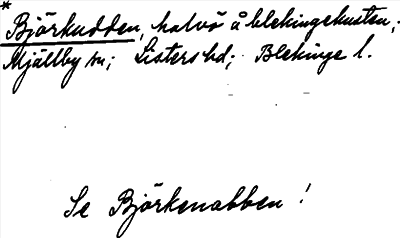 * Björkudden, halvö å blekingekusten,
Mjällby sn; Listers hd; Blekinge l.
Se Björkenabben!